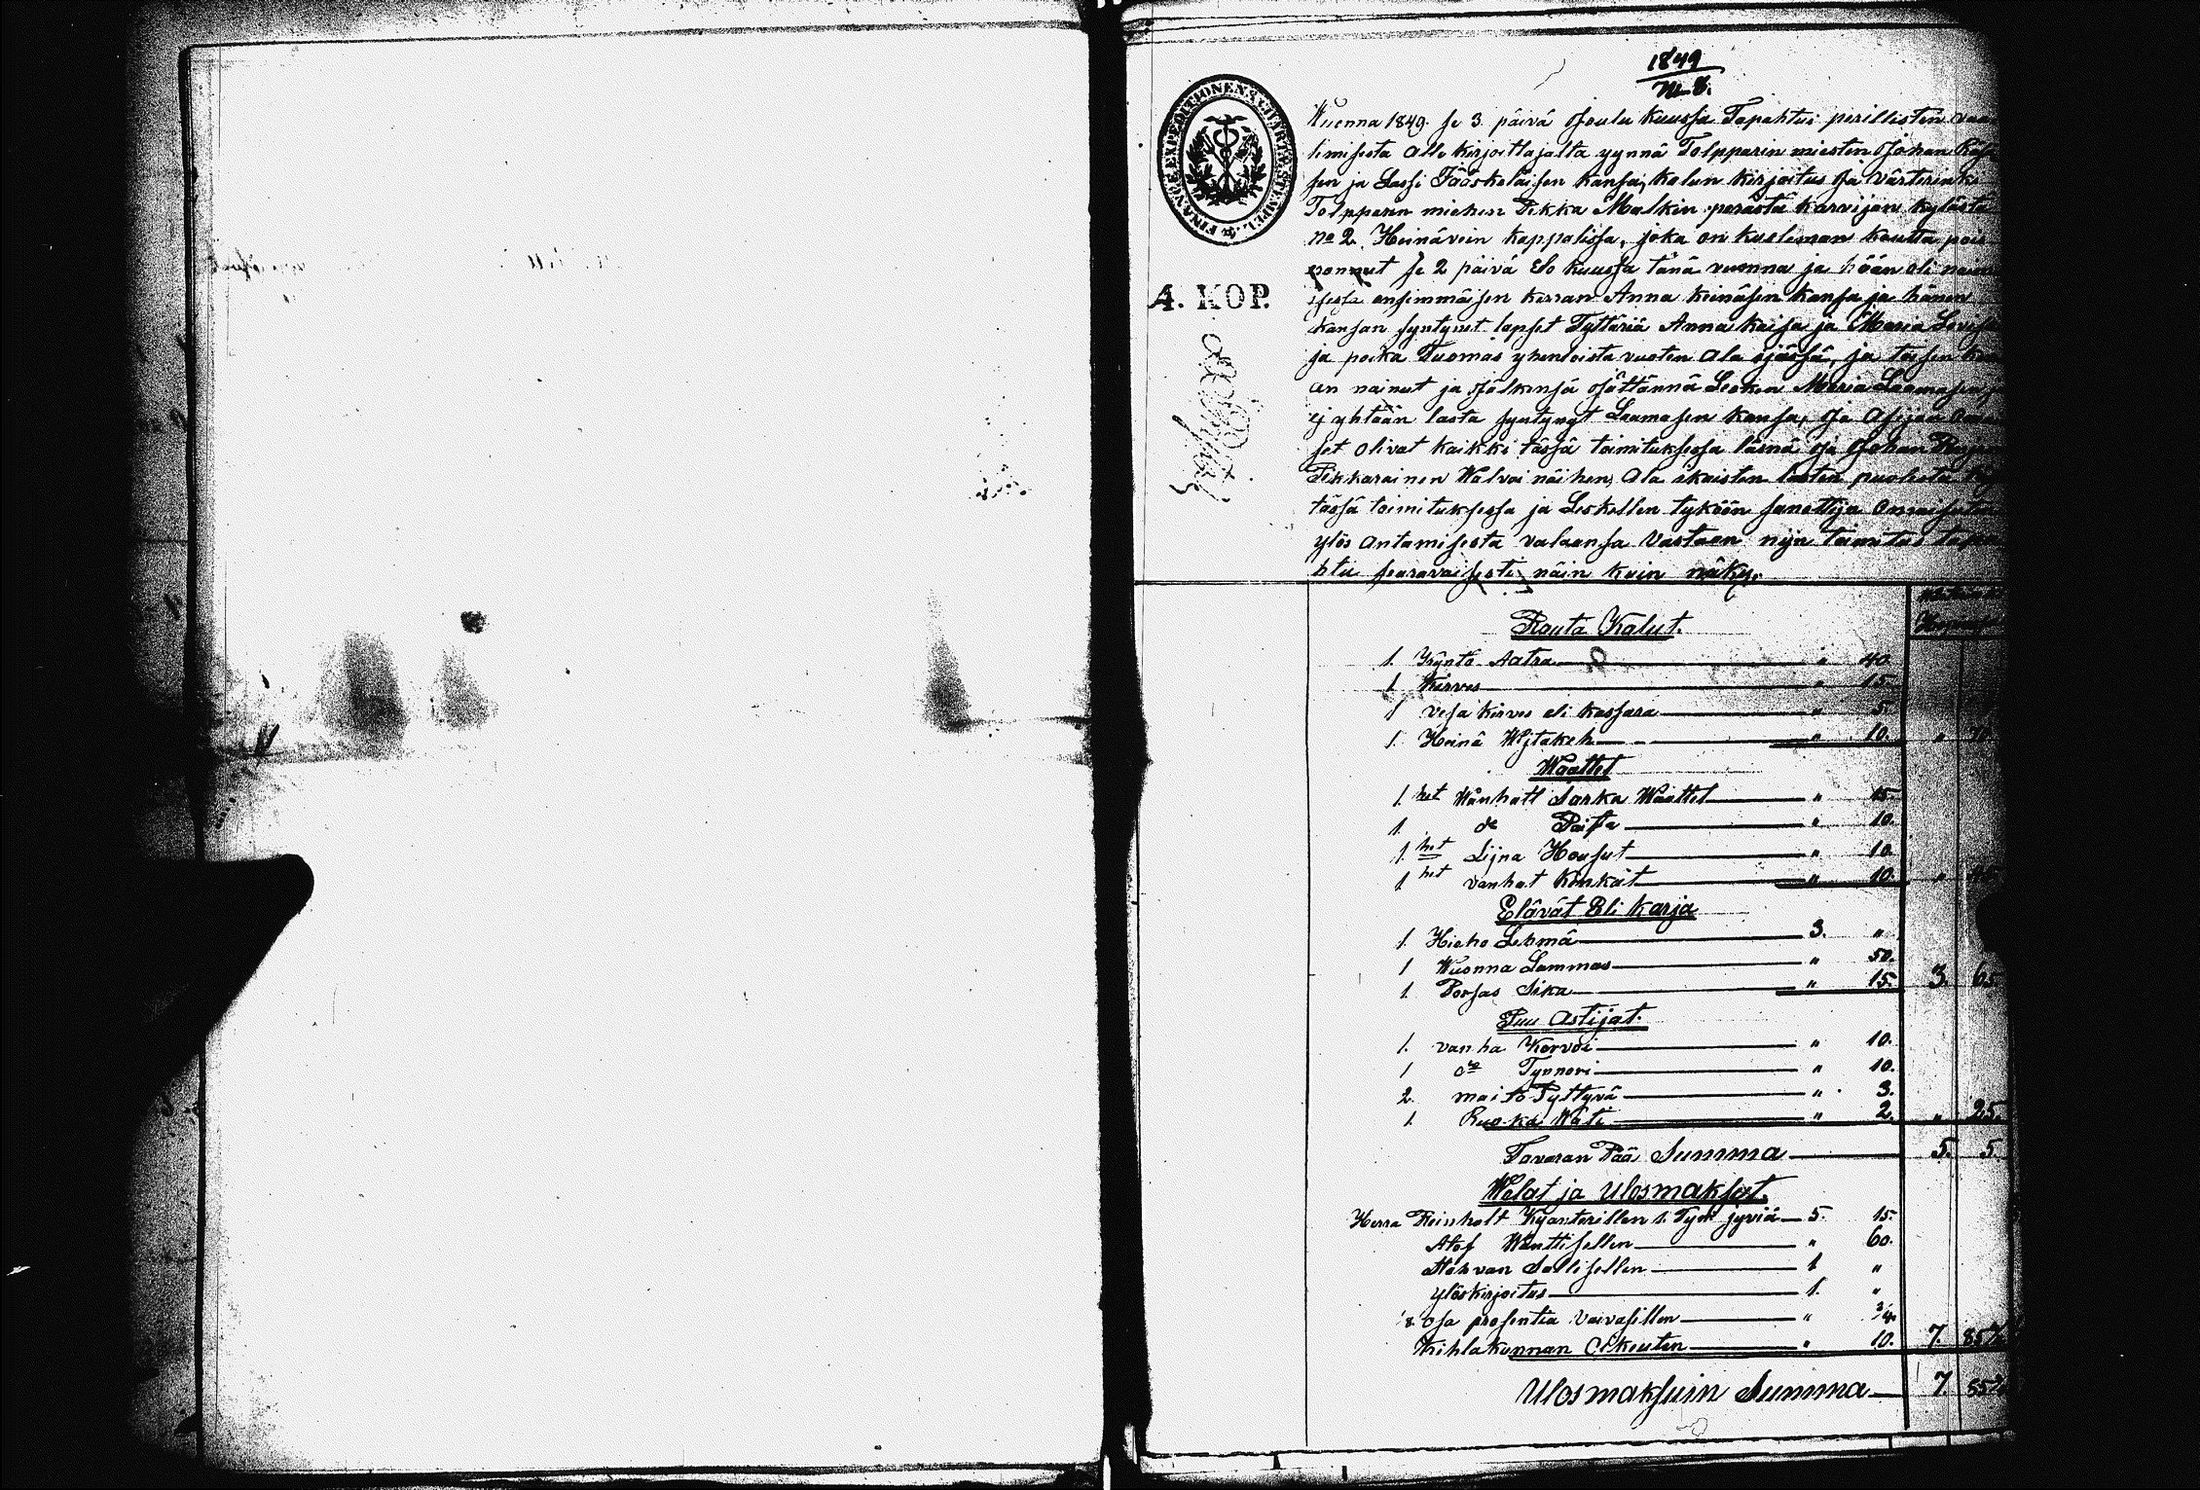 1849
No 8.
FINANCE EXPEDITIONENS CHARTÆ STEMPEL
4. KOP.
Wuonna 1849. se 3. päivä Joulu kuussa Tapahtui perillisten vaa
timisesta alle kirjoittajalta ynnä Tolpparin miesten Johan
sen ja Lassi Jääskeläisen kansa, kalun kirjoitus ja värterinki
Tolpparin miehen Pekka Malkin perästä karvijan kylästä
No 2. Heinävein kappalissa, joka on kuoleman kautta pois
mennut se 2 päivä Elo kuussa tänä vuonna ja hään oli
ensimmäisen kerran Anna keinäsen kansa ja hänen
kansan syntynet lapset Tyttäriä Anna kaisa ja Maria Lovisa
ja poika Tuomas yhentoista vuoten ala ijässä, ja toisen
on nainut ja jälkensä jättännä Lesken Maria Laamasen
ej yhtään lasta syntynyt Laamasen kansa, ja Asijan
set olivat kaikki tässä toimituksessa läsnä ja Johan
Pikkarainen Walvoi näihen Ala ikäisten lasten puolesta
tässä toimituksessa ja Leskellen tyköön sanottija omaisuuten
ylös antamisesta valaansa Vastaan nijn toimitus tapa
htu seuravaisesti näin kuin näky.
Rauta Kalut.
1. Yrjyntö Aatra " 40.
1 Kirves " 15.
1 vesa kirves eli kassara " 5.
1. Heinä Wijtakeh " 10. "
Waattet
1. ket Wanhatt Sarka Waattet " 15.
1. do Paita " 10.
1. ket Lijna Housut " 10.
1 ket vanhat Kenkät " 10. " 45
Elävät Eli karja
1. Hieho Lehmä 3. "
1 Wuonna Lammas " 50.
1. Porsas Sika " 15. 3. 65
Puu Astijat.
1. vanha Korvoi " 10.
1 do Tynnöri " 10.
2. maito Pyttyvä " 3.
1. Ruoka Wati " 2. " 25.
Tavaran Pää Summa 5. 5.
Welat ja Ulosmaksut.
Herra Reinholt jyviä 5. 15.
Atof Wänttisellen " 60.
Sallisellen 1 "
ylöskirjoitus 1. "
1/8 osa prosentia Vaivasillen " 3/4
Kihlakunnan Oikeuten " 10. 7. 85
Ulosmaksuin Summa 7. 85